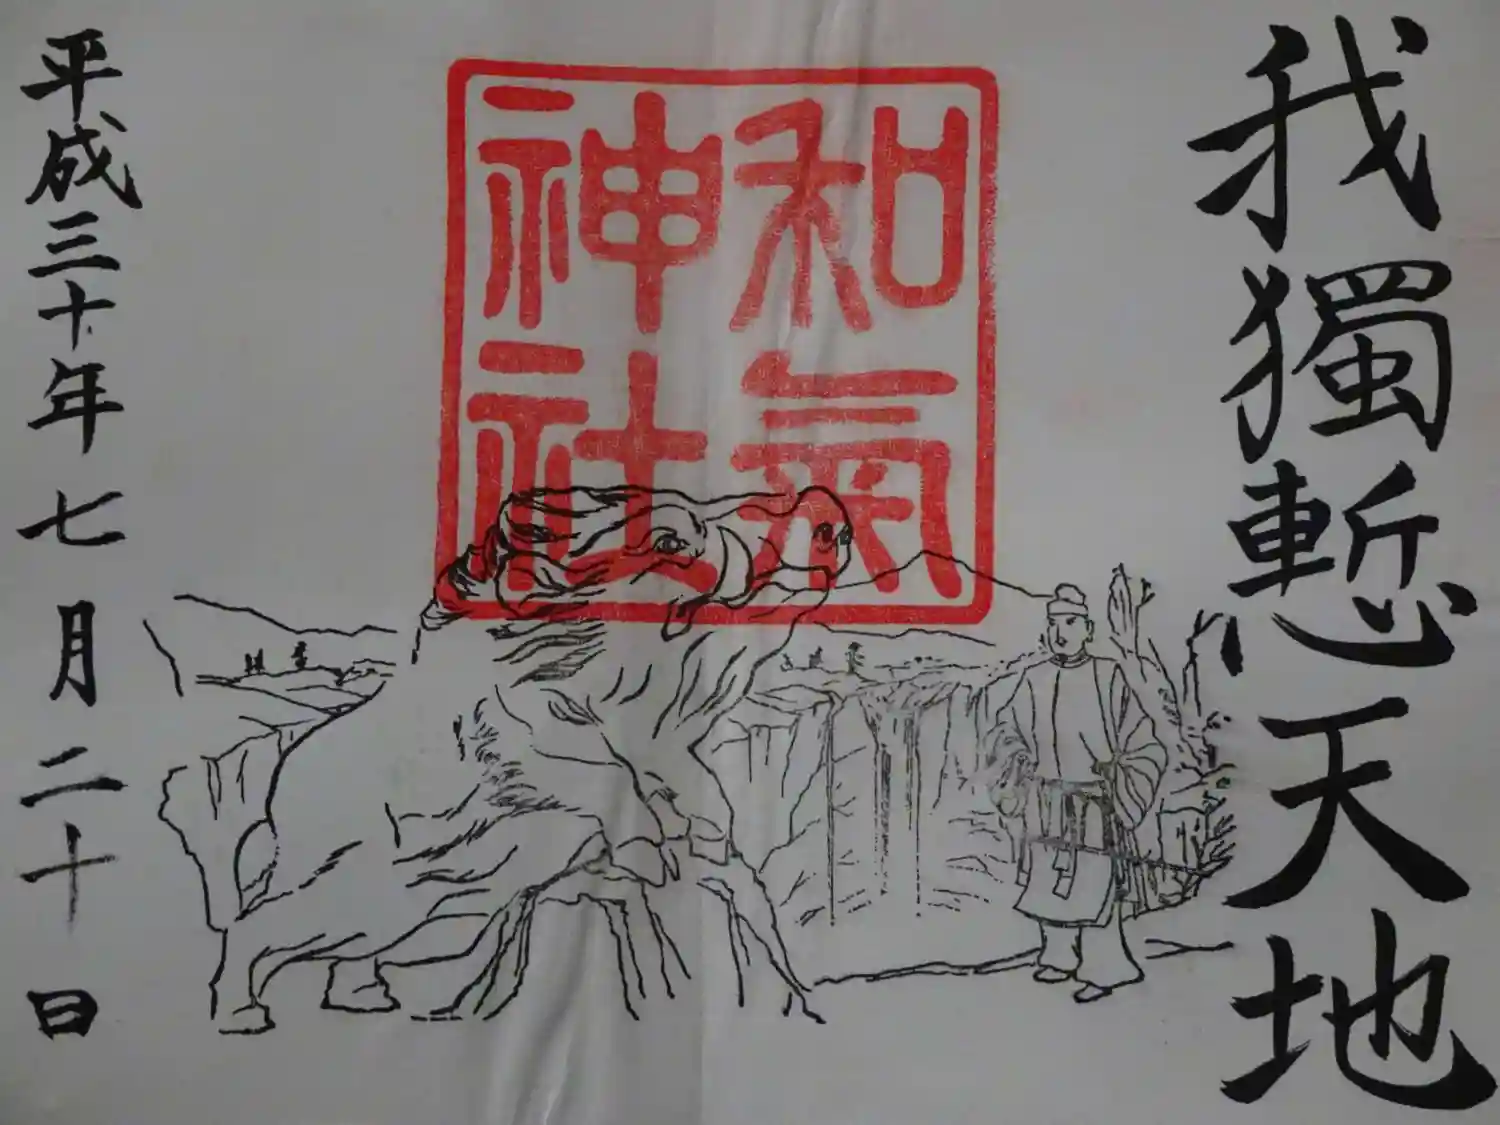 我獨慙天地
和氣
神社
平成三十年七月二十日